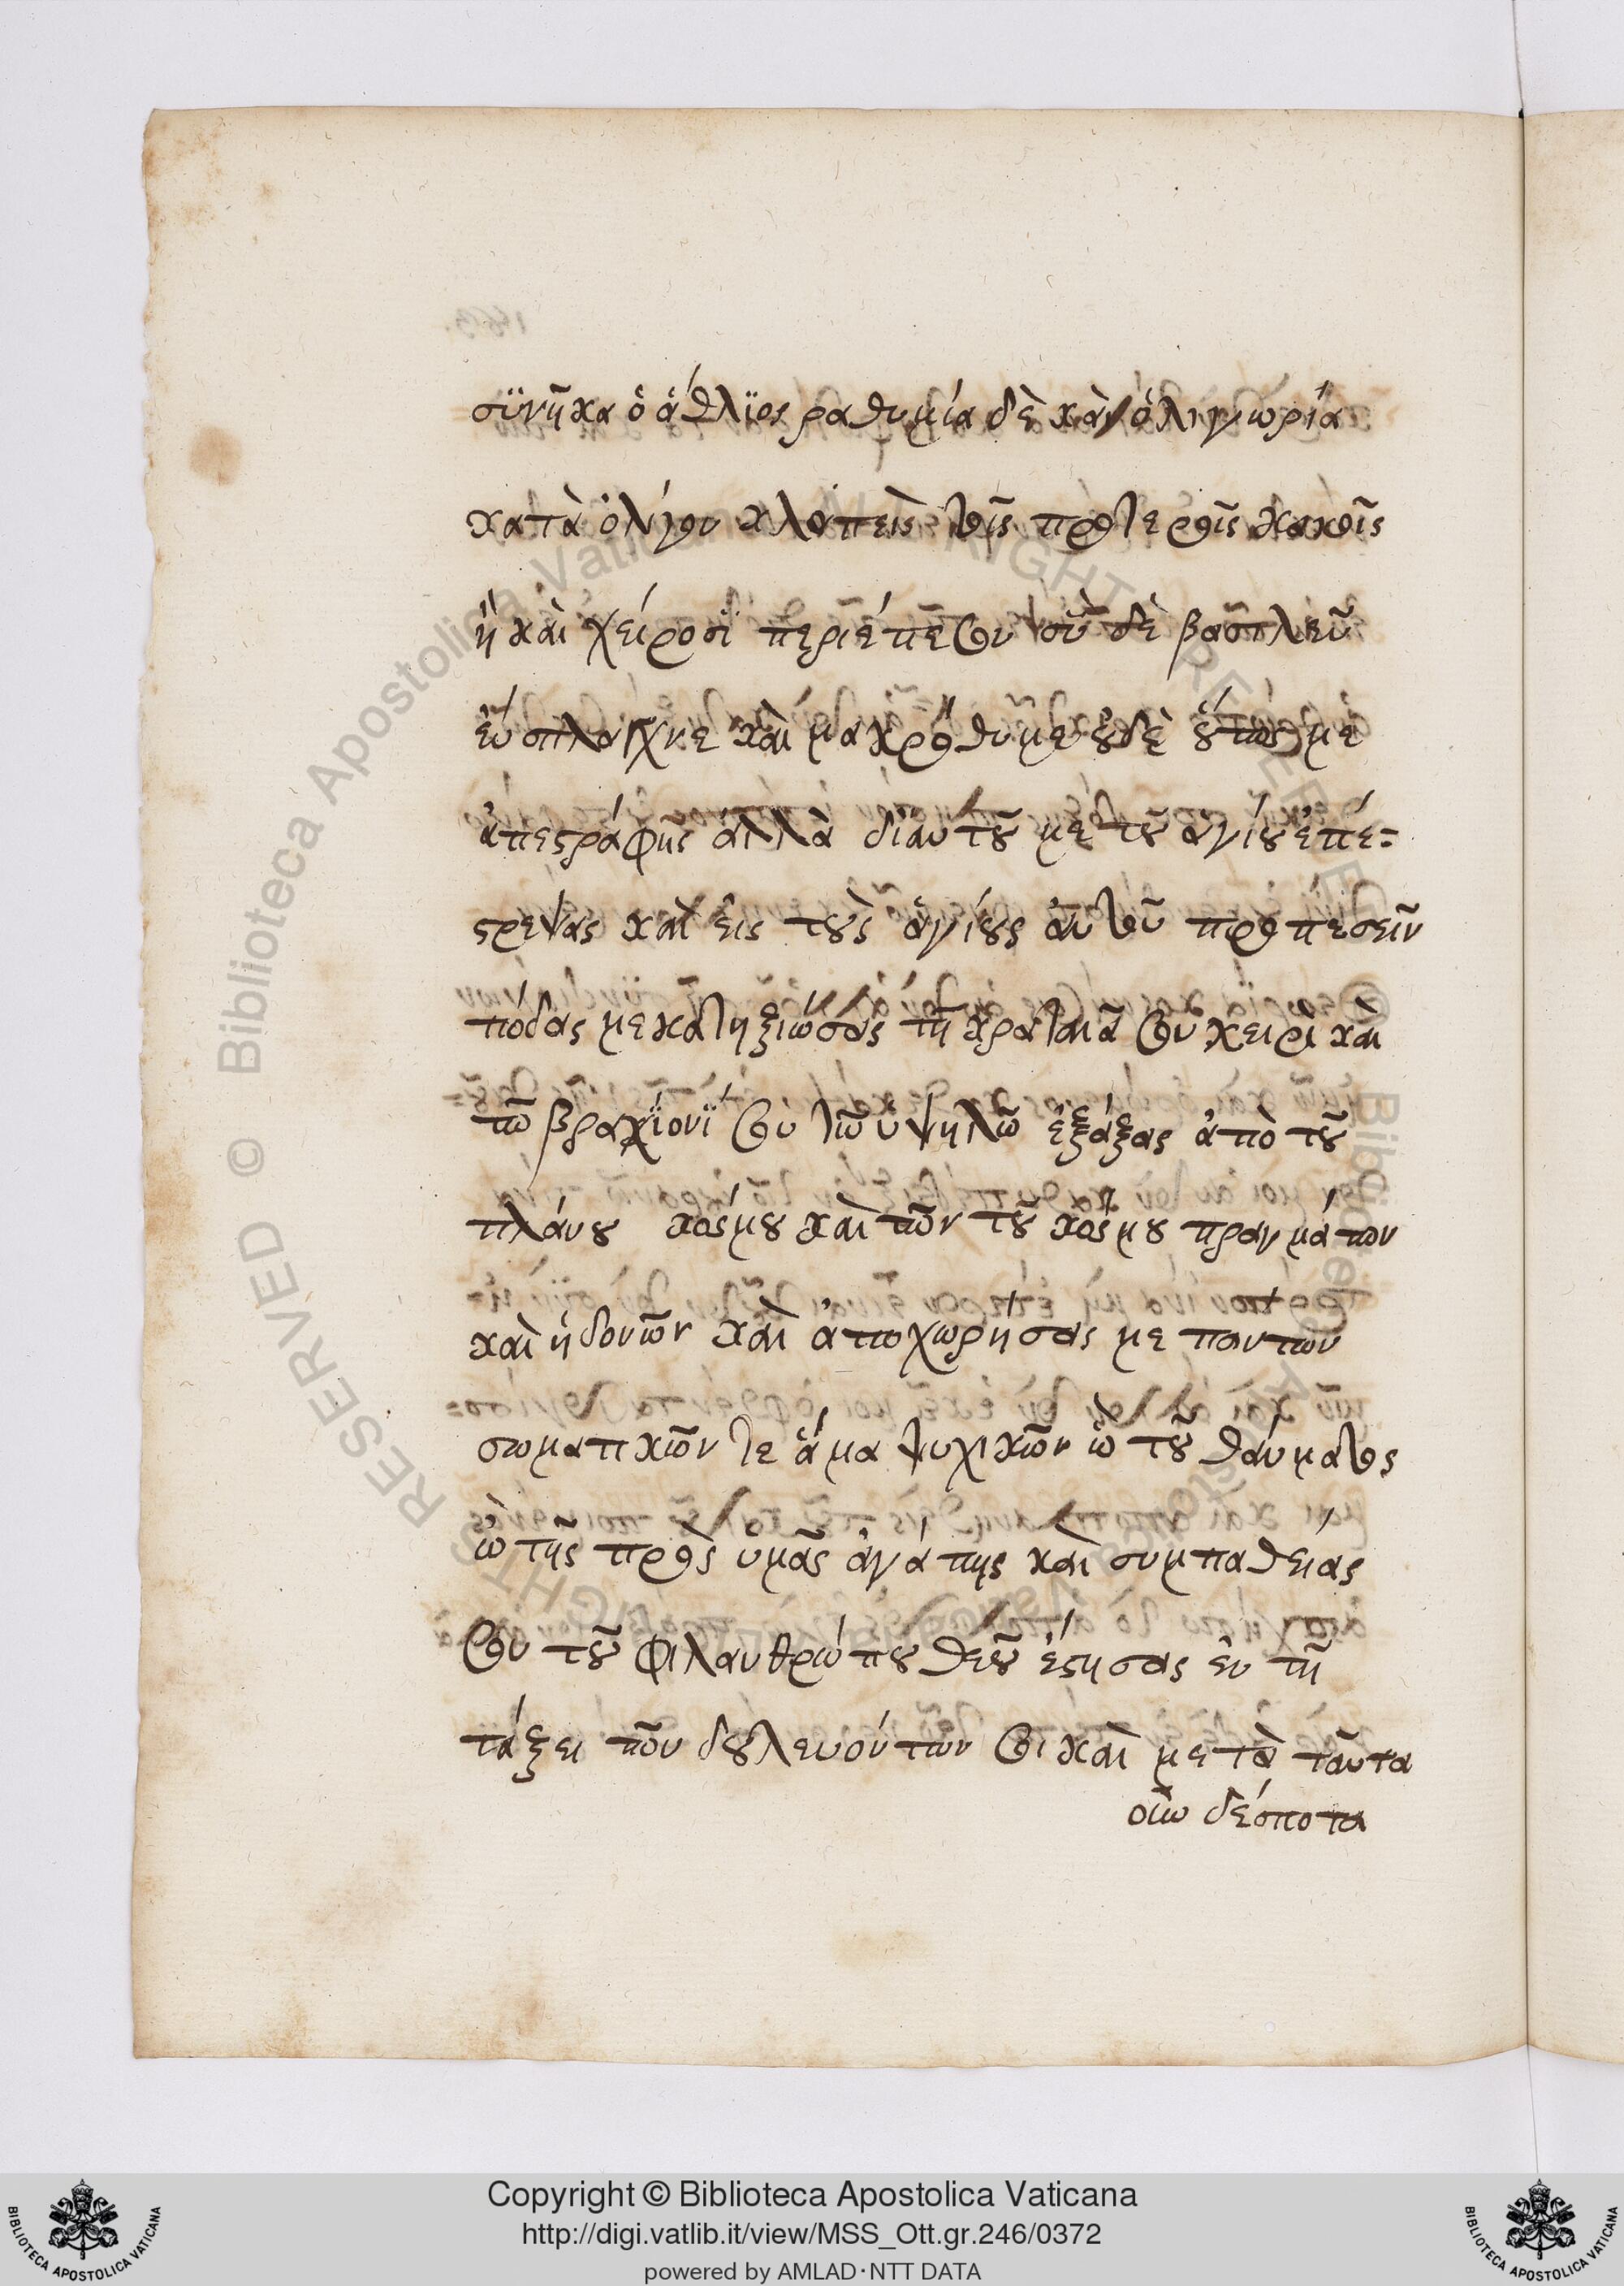 συνῆκα ὁ ἄθλϊος ραθυμία δὲ καὶ ὀλιγωρία
κατὰ ὀλίγον κλαπεὶς τοῖς προτεροῖς κακοῖς
ἢ καὶ χείροσϊ περιέπεσον σὺ δὲ βασιλεῦ
εὔσπλαγχνε καὶ μακρόθυμε οὐδὲ οὕτως με
ἀπεστράφης ἀλλὰ δϊαυτοῦ με τοῦ ἁγίου ἐπέ=
στρεψας καὶ εἰς τοὺς ἁγίους αὐτοῦ προπεσεῖν
πόδας με κατηξιώσας τῆ κραταιᾶ σου χειρὶ καὶ
τῶ βραχίονϊ σου τῶ ὑψηλῶ ἐξάξας ἀπὸ τοῦ
πλάνου κόσμου καὶ τῶν τοῦ κόσμου πραγμάτων
καὶ ἡδονῶν καὶ ἀποχωρήσας με παντων
σωματικῶν τε ἅμα ψυχικῶν ὢ τοῦ θαύματος
ὢ τῆς πρὸς ὑμᾶς ἀγάπης καὶ συμπαθείας
σου τοῦ φιλανθρώπου θεοῦ ἔστησας ἐν τῆ
τάξει τῶν δουλευόντων σοι καὶ μετὰ ταῦτα
δέσποτα
Copyright © Biblioteca Apostolica Vaticana
http://digi.vatlib.it/view/MSS_Ott.gr.246/0372
powered by AMLAD·NTT DATA
BIBLIOTECA APOSTOLICA VATICANA
BIBLIOTECA APOSTOLICA VATICANA